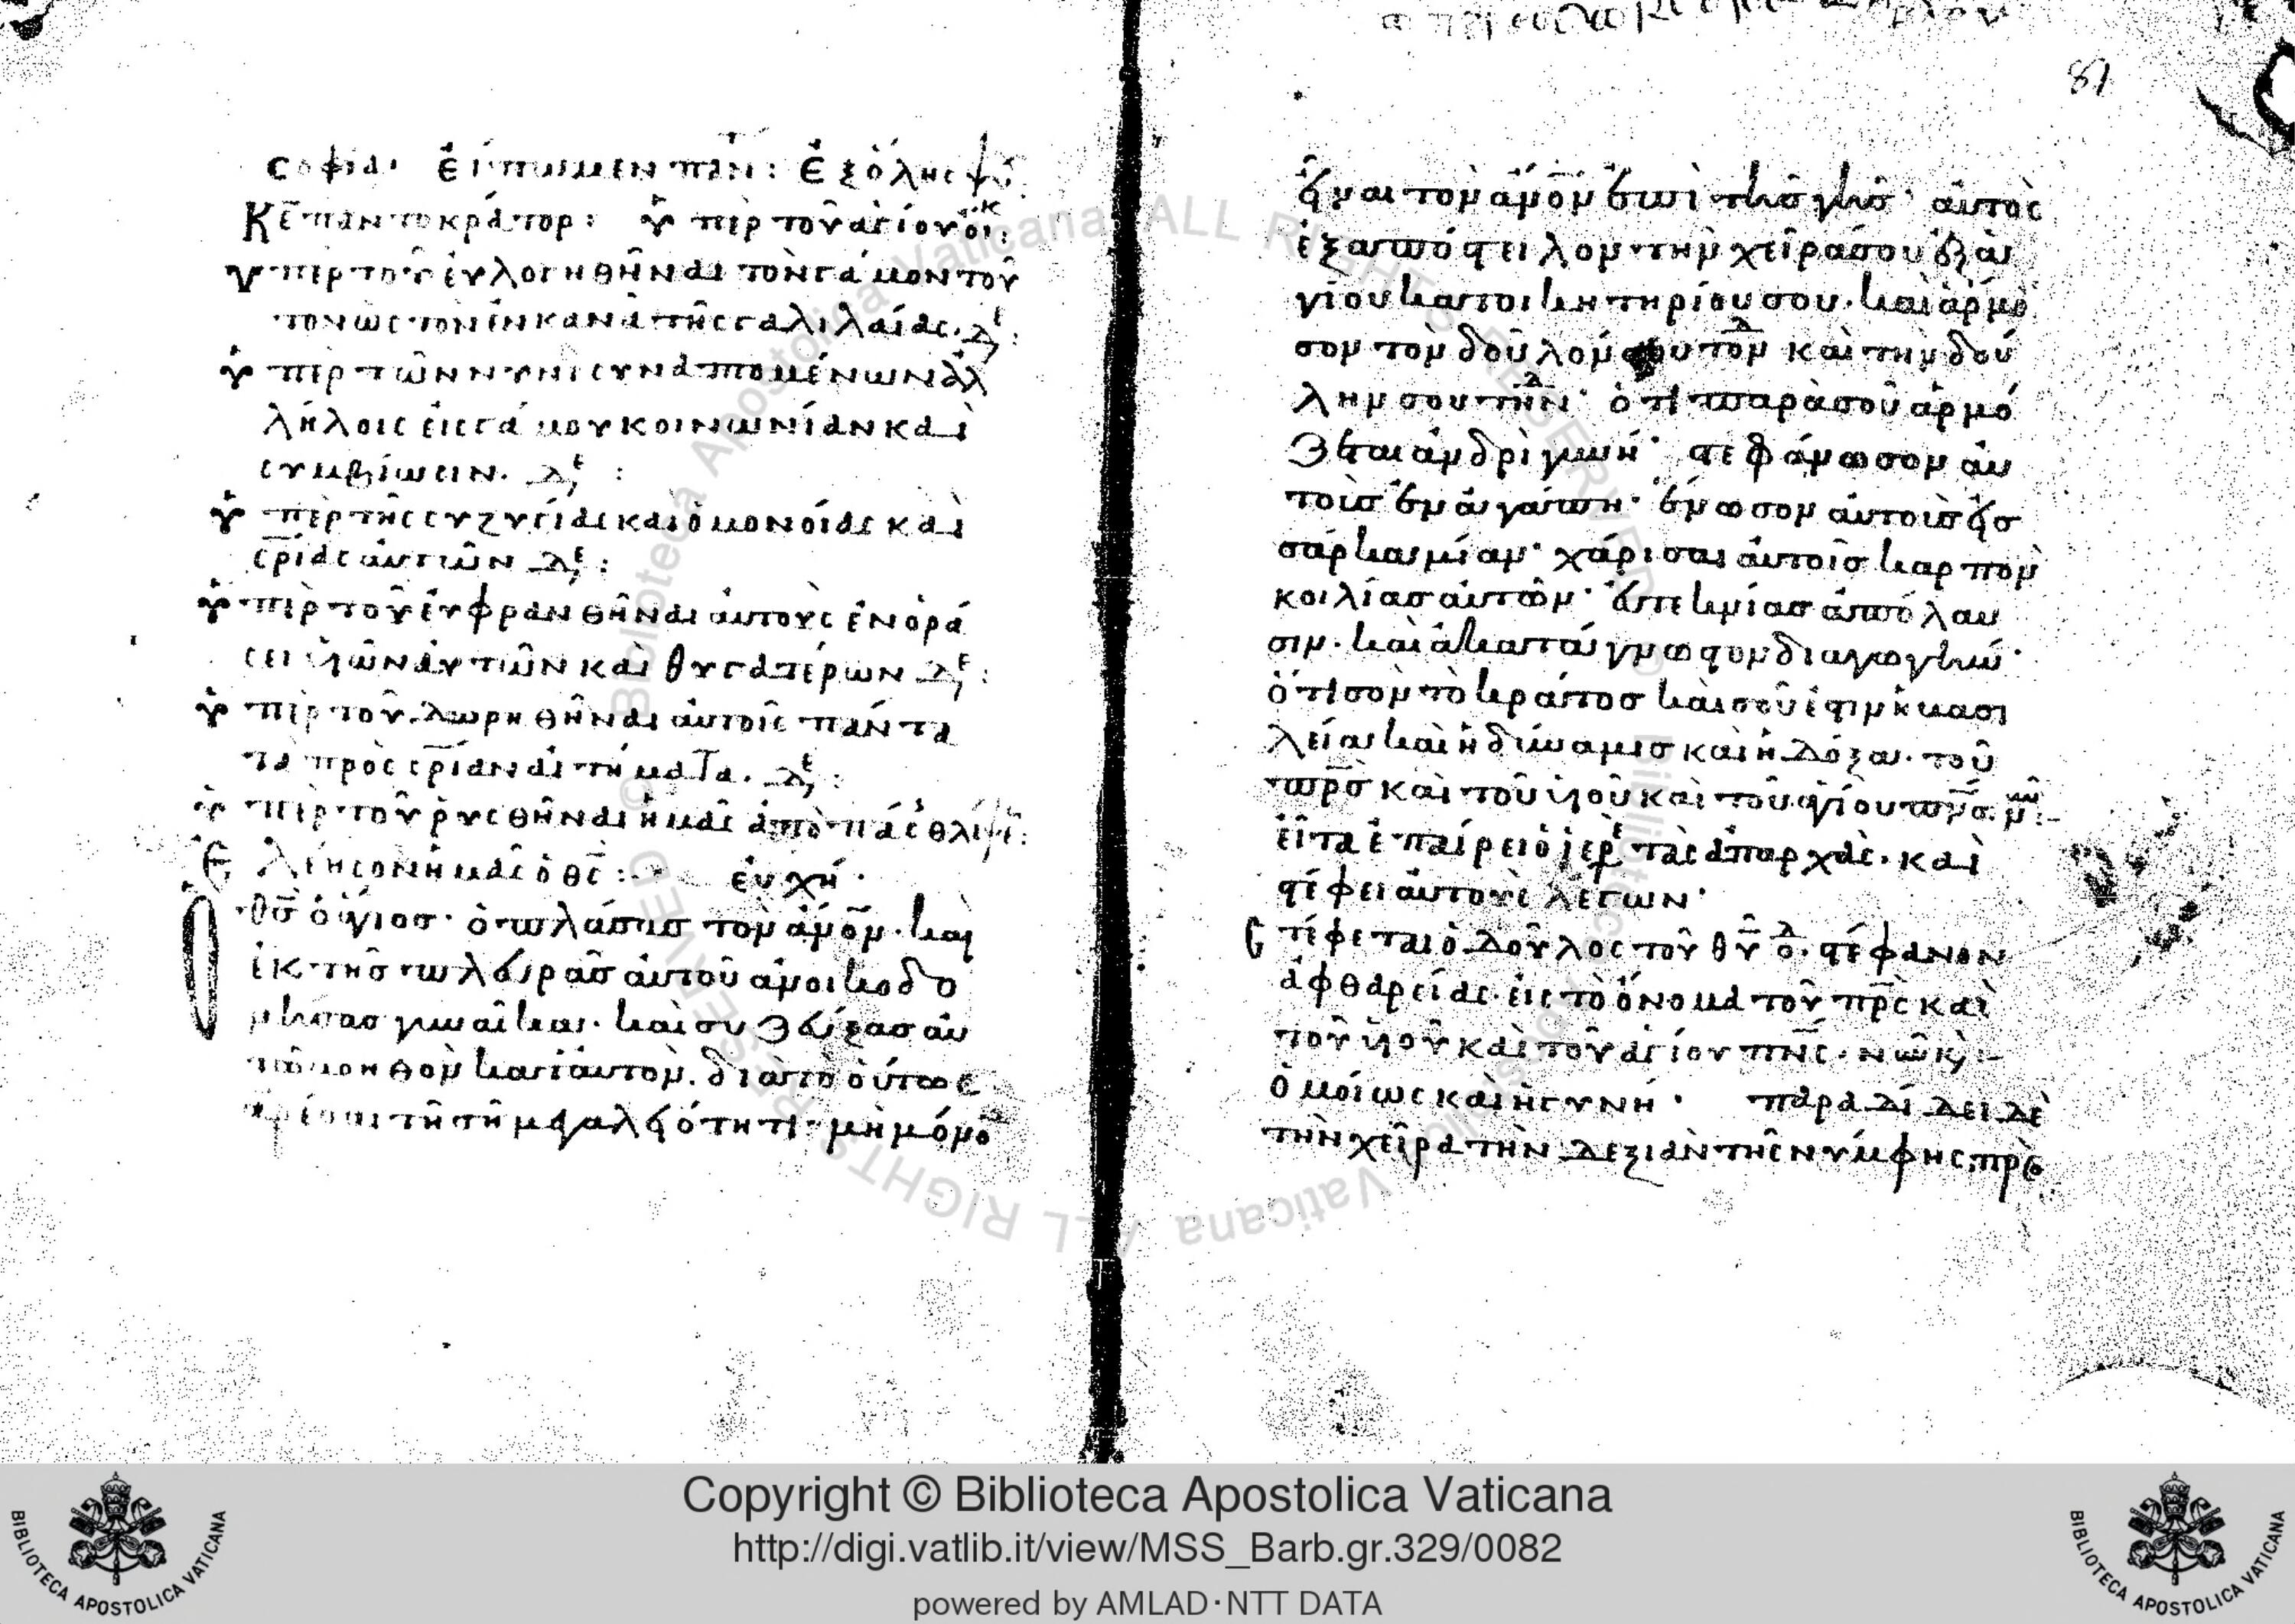 σοφία· Εἴπωμεν πάν(τ): Ἐξ ὅλης ψυ
Κε παντοκράτορ: ὑπὲρ τοῦ ἁγίου οἴκ:
ὑπὲρ τοῦ εὐλογηθῆναι τὸν γάμον τοῦ
τον ὡς τὸν ἐν κανὰ τῆς γαλιλαίας. δε:
ὑπὲρ τῶν νυνὶ συναπτομένων ἀλ
λήλοις εἰς γάμου κοινωνίαν καὶ
συμβίωσιν. δε:
ὑπὲρ τῆς συζυγίας καὶ ὁμονοίας καὶ
σρίας αὐτῶν δε:
ὑπὲρ τοῦ εὐφρανθῆναι αὐτοὺς ἐν ὁρά
σει υἱῶν αὐτῶν καὶ θυγατέρων δε:
ὑπὲρ τοῦ δωρηθῆναι αὐτοῖς πάντα
τὰ πρὸς σρίαν αἰτήματα. δε:
ὑπὲρ τοῦ ῥυσθῆναι ἡμᾶς ἀπὸ πάσ θλίψε:
Ἐλέησον ἡμᾶς ὁ θς: εὐχή·
Ὁ θς ὁ ἅγιος· ὁ πλάσας τὸν ἀνον· καὶ
ἐκ τῆς πλευρᾶς αὐτοῦ ἀνοικοδο
μήσας γυναῖκα· καὶ συζεύξας αὐ
τῶ βοηθὸν κατ' αὐτόν. διὰ τὸ οὕτως
ἀρέσαι τῆ σῆ μεγαλειότητι· μὴ μόνο
81
εἶναι τὸν ἀνον ἐπὶ τῆς γῆς· αὐτὸς
ἐξαπόστειλον τὴν χεῖρά σου ἐξ ἁ
γίου κατοικητηρίου σου· καὶ ἅρμο
σον τὸν δοῦλόν σου τὸν δ καὶ τὴν δού
λην σου τὴν δ· ὅτι παρὰ σοῦ ἁρμό
ζεται ἀνδρὶ γυνή· στεφάνωσον αὐ
τοὺς ἐν ἀγάπη· ἕνωσον αὐτοὺς εἰς
σάρκα μίαν· χάρισαι αὐτοῖς καρπὸν
κοιλίας αὐτῶν· εὐτεκνίας ἀπόλαυ
σιν· καὶ ἀκατάγνωστον διαγωγήν·
ὅτι σὸν τὸ κράτος καὶ σοῦ ἐστιν ἡ βασι
λεία καὶ ἡ δύναμις καὶ ἡ δόξα· τοῦ
πρς καὶ τοῦ υἱοῦ καὶ τοῦ ἁγίου πνς. νῦν:-
εἶτα ἐπαίρει ὁ ἱερε τὰς ἀπαρχὰς· καὶ
στέφει αὐτοὺς λέγων·
Στέφεται ὁ δοῦλος τοῦ θυ ὁ δ· στέφανον
ἀφθαρσίας· εἰς τὸ ὄνομα τοῦ πρς καὶ
τοῦ υἱοῦ καὶ τοῦ ἁγίου πνς· νῦν κ:-
ὁμοίως καὶ ἡ γυνή· παραδίδει δὲ
τὴν χεῖρα τὴν δεξιὰν τῆς νύμφης πρὸ
Copyright © Biblioteca Apostolica Vaticana
http://digi.vatlib.it/view/MSS_Barb.gr.329/0082
powered by AMLAD·NTT DATA
BIBLIOTECA APOSTOLICA VATICANA
BIBLIOTECA APOSTOLICA VATICANA